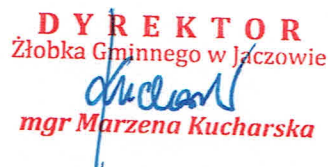 DYREKTOR
Żłobka Gminnego w Jaczowie
mgr Marzena Kucharska